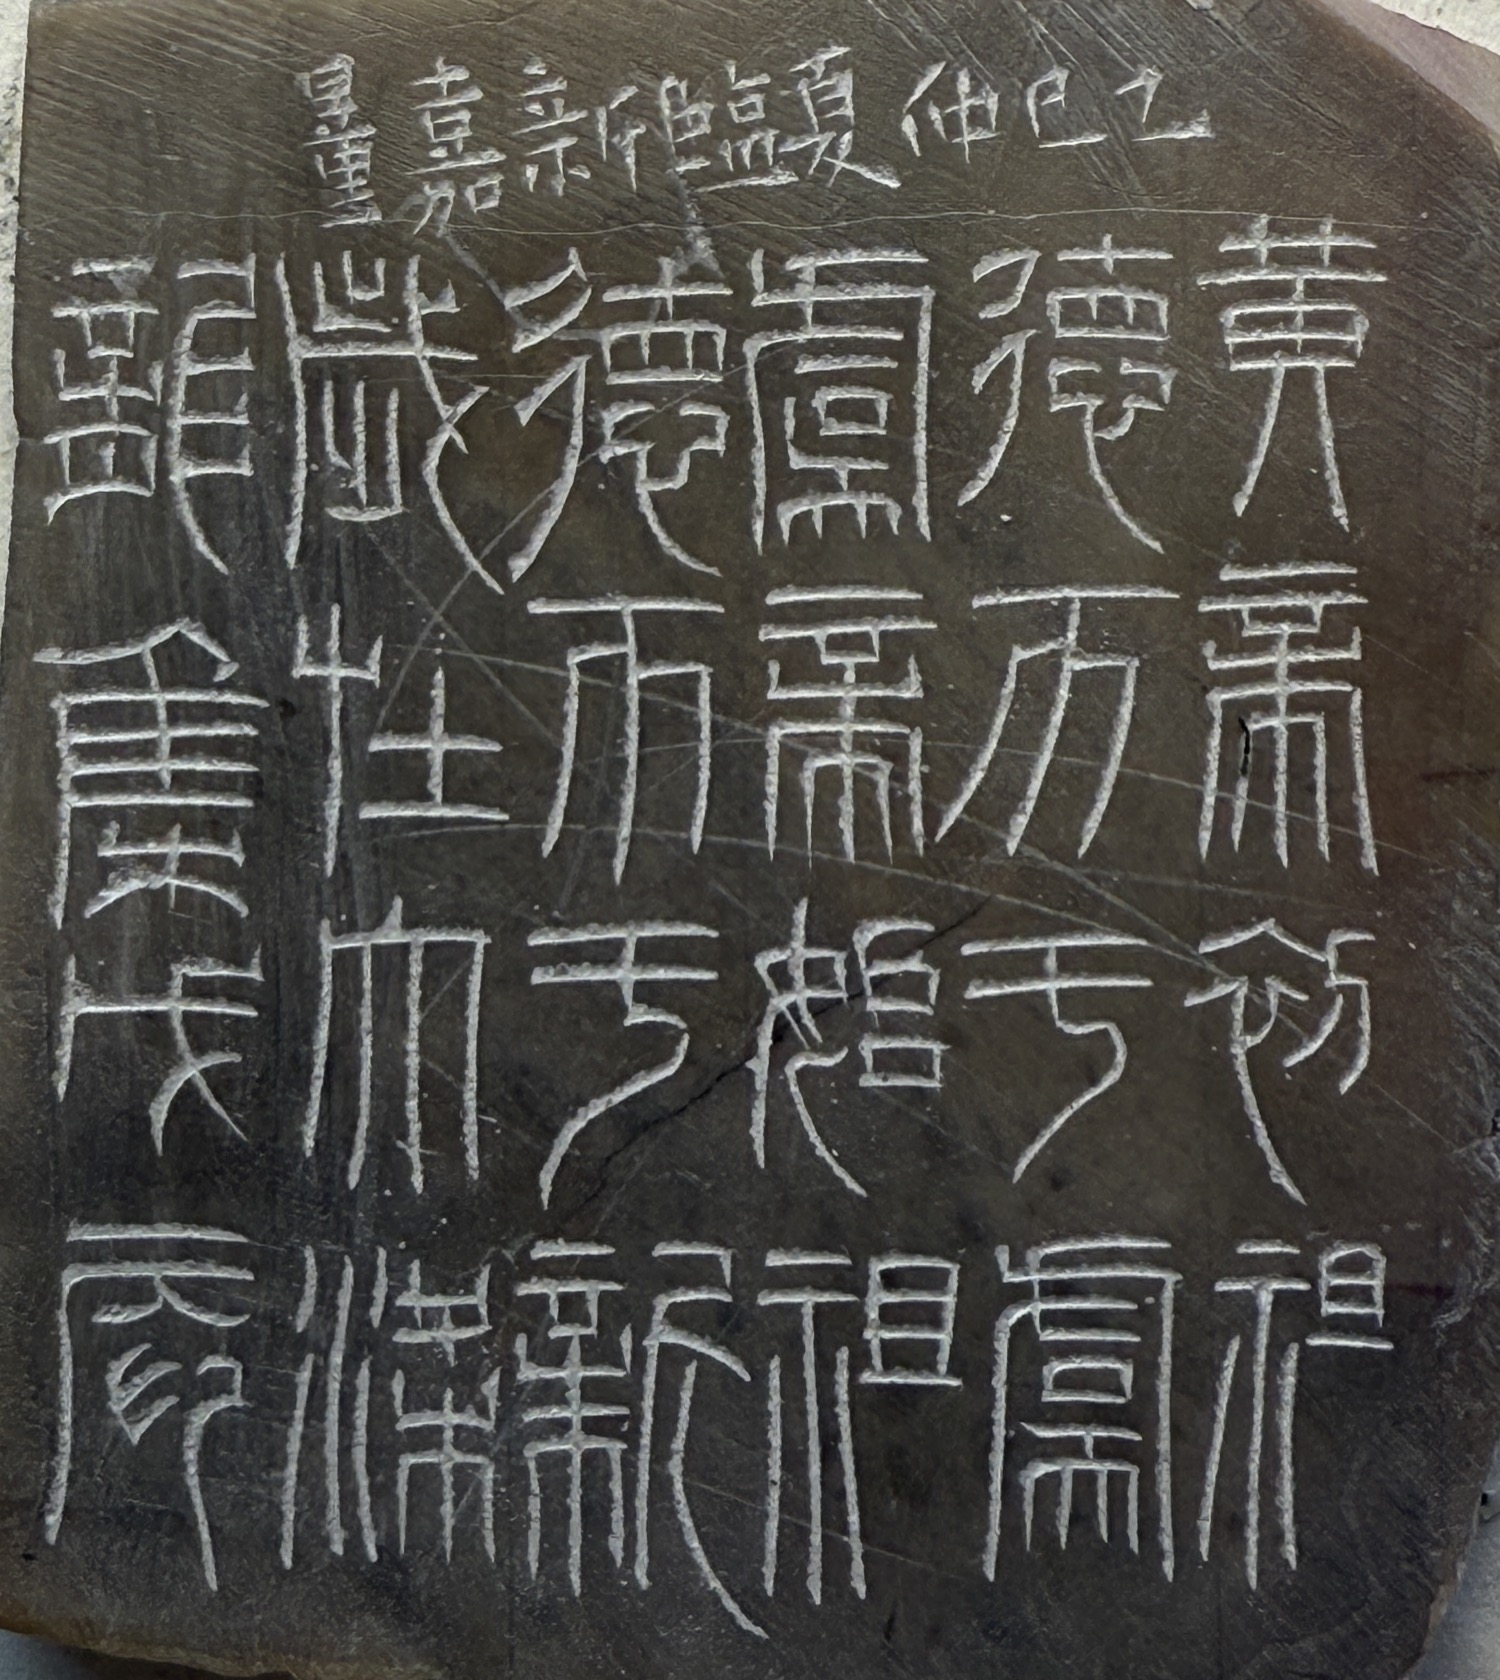 乙巳仲夏臨新嘉量
黃帝初祖
德帀于虞
虞帝始祖
德帀于新
歲在大梁
龍集戊辰